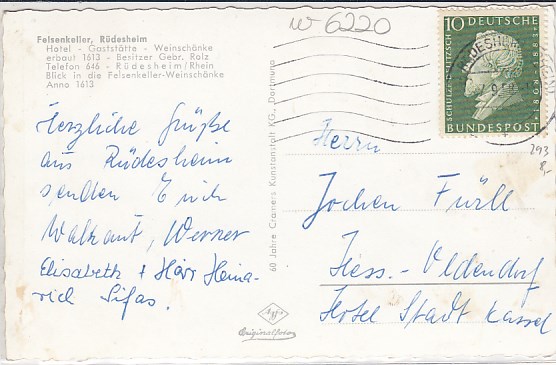 Felsenkeller, Rüdesheim
Hotel - Gaststätte - Weinschänke
erbaut 1613 - Besitzer Gebr. Rolz
Telefon 646 - Rüdesheim/Rhein
Blick in die Felsenkeller-Weinschänke
Anno 1613
W 6220
10 DEUTSCHE
SCHULZE-DELITZSCH
1808-1883
BUNDESPOST
293
8,-
Herzliche Grüße
aus Rüdesheim
senden Euch
Waltraut, Werner
Elisabeth + Herr Heina-
rich Sifas.
60 Jahre Cramers Kunstanstalt KG., Dortmund
Herrn
Jochen Füll
Hess.-Oldendorf
Hotel Stadt Kassel
Agfa
Originalfoto